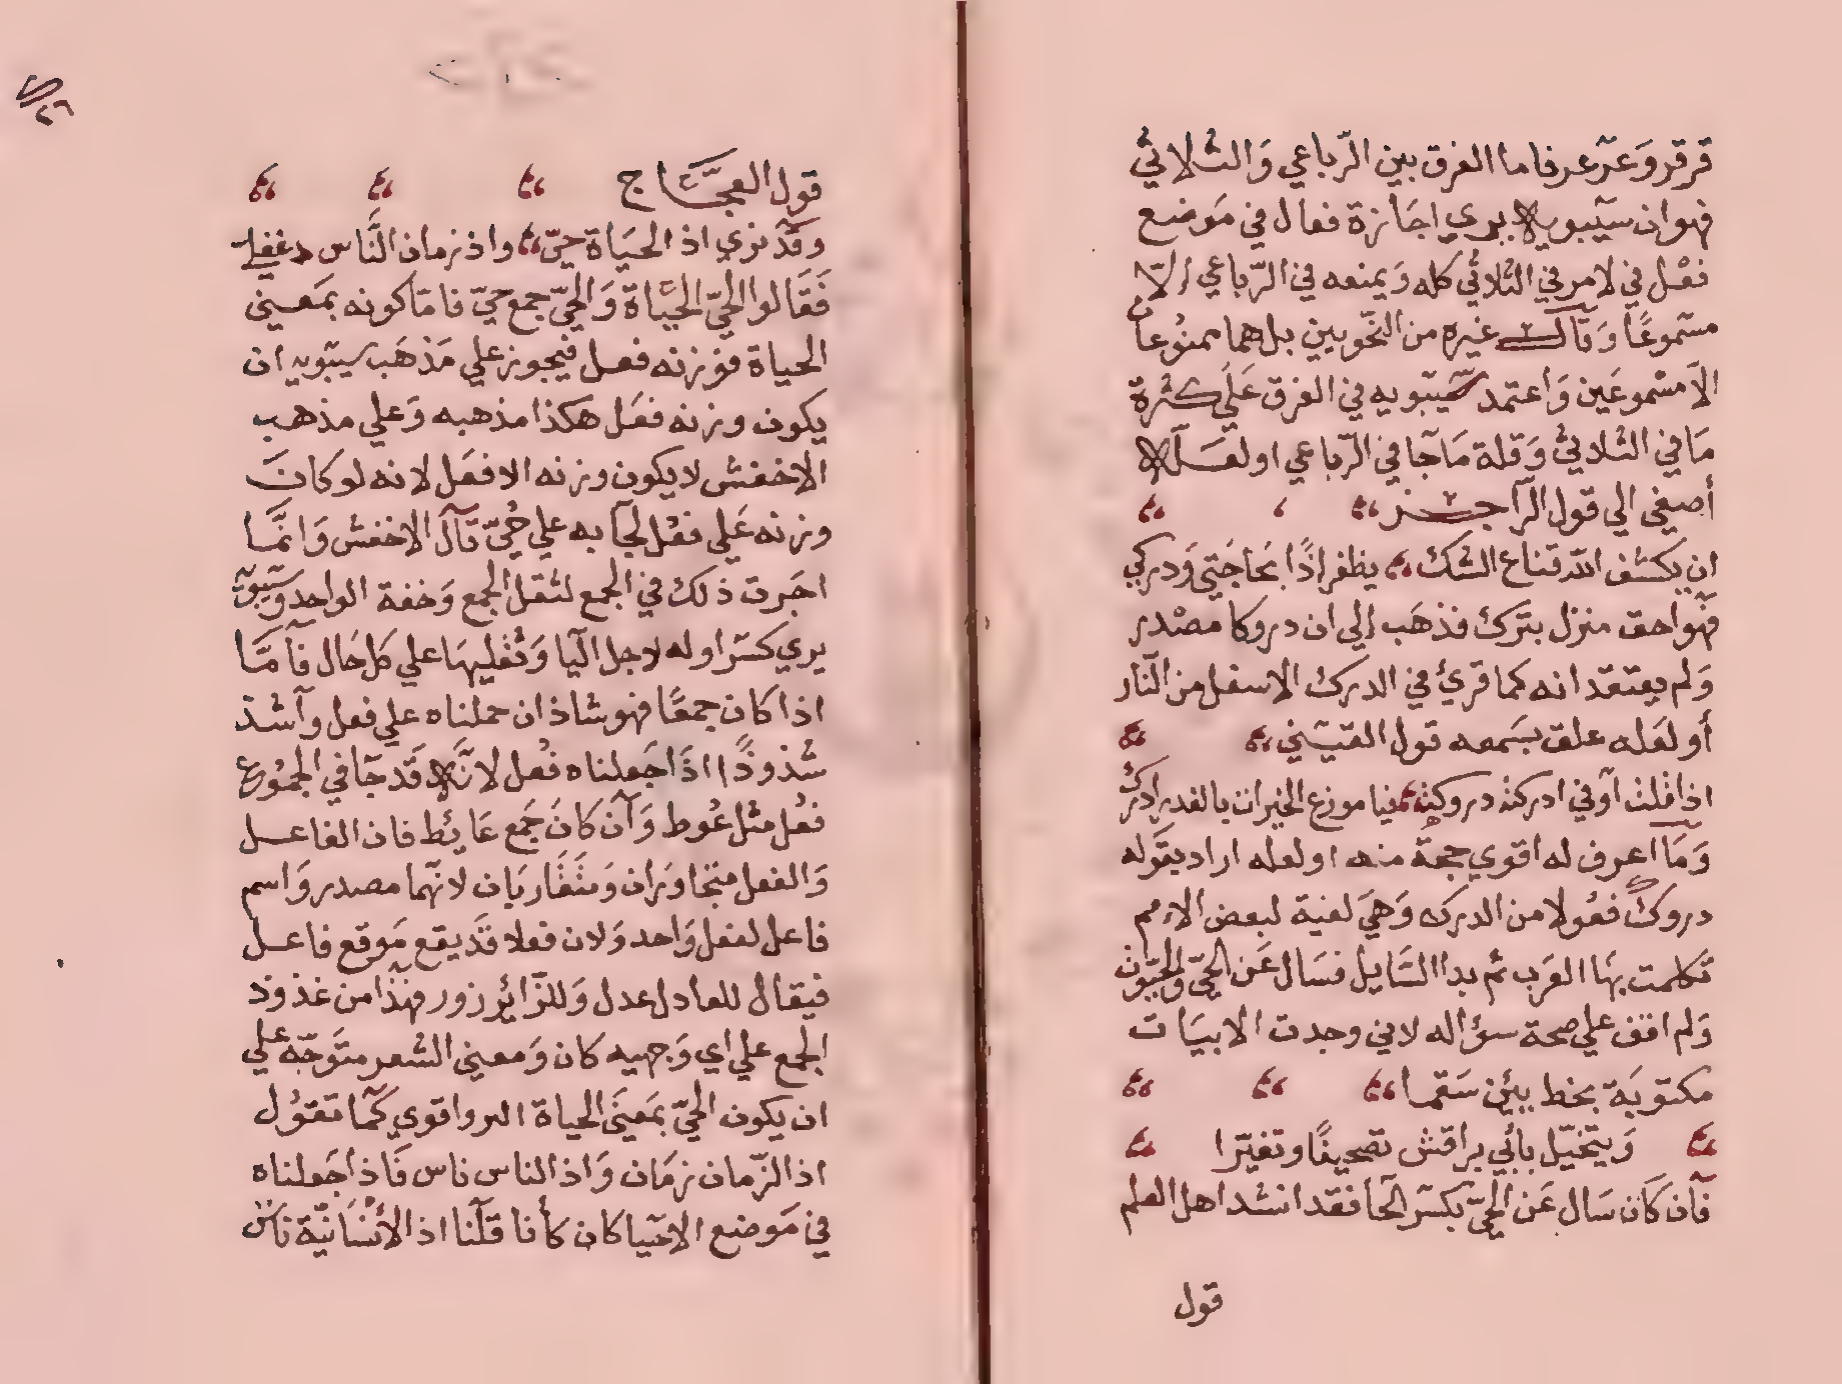 قرقر وَعرّعر فاما الفرق بين الرّباعي وَالثلاثيّ
فهو ان سيبويه يري اجَازة فعال في مَوضع
فعْل في الامر في الثلاثي كله وَيمنعه في الرّباعي إلاّ
مسَموعًا وَقال غيره من النحّويين بل هما ممنوُعان
الاَ مسْموعَين وَاعتمد سيَبويه في الفرق عَلَي كثرة
مَا في الثلاثيّ وَقلة مَا جَا في الرّباعي او لعَلّه
أصغي الي قول الرّاجز
ان يكشف الله قناع الشك يظفر اذًا بحَاجَتي وَدركي
فهَو احق منزل بتَرك فذهَب إلى ان دروكا مصْدر
وَلم يعتقد انه كما قريَ في الدرك الاسفل من النّار
أو لعَله علق بسَمعه قول القيَني
اذا قلت آوفي ادركته دروكة فيا موزع الخيرات بالغدر ادرك
وَمَا اعرف له اقوي حجة منه او لعله اراد بقَوله
دروك فعُولا من الدرك وَهيَ لغية لبعض الامم
تكلمت بهَا العَرب ثم بدا السَايل فسَال عَن الحِيّ وَالحيوَان
وَلم اقف علي صحة سؤاله لاني وجدت الابيَات
مكتوبَة بخط بيّن سَقما
وَيتخيّل بأبي براقش تصحيفًا وتغيّرا
فَان كَان سَال عَن الحِيّ بكسَر الحَا فقد انشد اهل العلم
قول
قول العجَّاج
وقَد نري اذ الحَياة حِيّ واذ زمان النَّاس دغفلي
فَقَالوا الحِيّ الحَيَاة وَالحِيّ جمع حيّ فامّا كونه بمَعني
الحياة فوزنه فعل فيجوز علي مَذهَب سيبَويه ان
يكون وزنه فعَل هكذا مذهبه وَعلي مذهب
الاخفش لا يكون وزنه الا فعَل لانه لو كانَ
وزنه عَلي فعُل لجَا به علي حُيّ قَال الاخفش وَانمَّا
اجَرت ذلك في الجمع لثقل الجمع وَخفة الواحد وَسيَبويه
يري كسَر اوله لاجل اليَا وَثُقليهَا علي كل حَال فأمَّا
اذا كان جمعًا فهو شاذ ان حملناه علي فعل وأشذ
شذوذًا اذَا جَعلناه فعُل لانّه قَد جَا في الجموُع
فعُل مثل عُوط وَآن كانَ جَمع عَائط فان الفاعل
وَالفعل متجَاوَران وَمتَقَاربَان لانهّما مصدر وَاسم
فاعل لفعل وَاحد وَلان فعلا قَد يقع مَوقع فاعل
فيقال للعادل عدل وَللزّائر زور فهَذا من غذوذ
الجمع علي اي وَجهيه كان وَمعني الشعر متَوجّه علي
ان يكون الحِيّ بمَعنَي الحياة اابر واقوي كَما تقوُل
اذ الزّمان زمَان وَاذ الناس ناس فَاذا جَعلناه
في مَوضع الاحَيا كان كأنا قَلنا اذ الأنْسَانيّة نَاسٌ